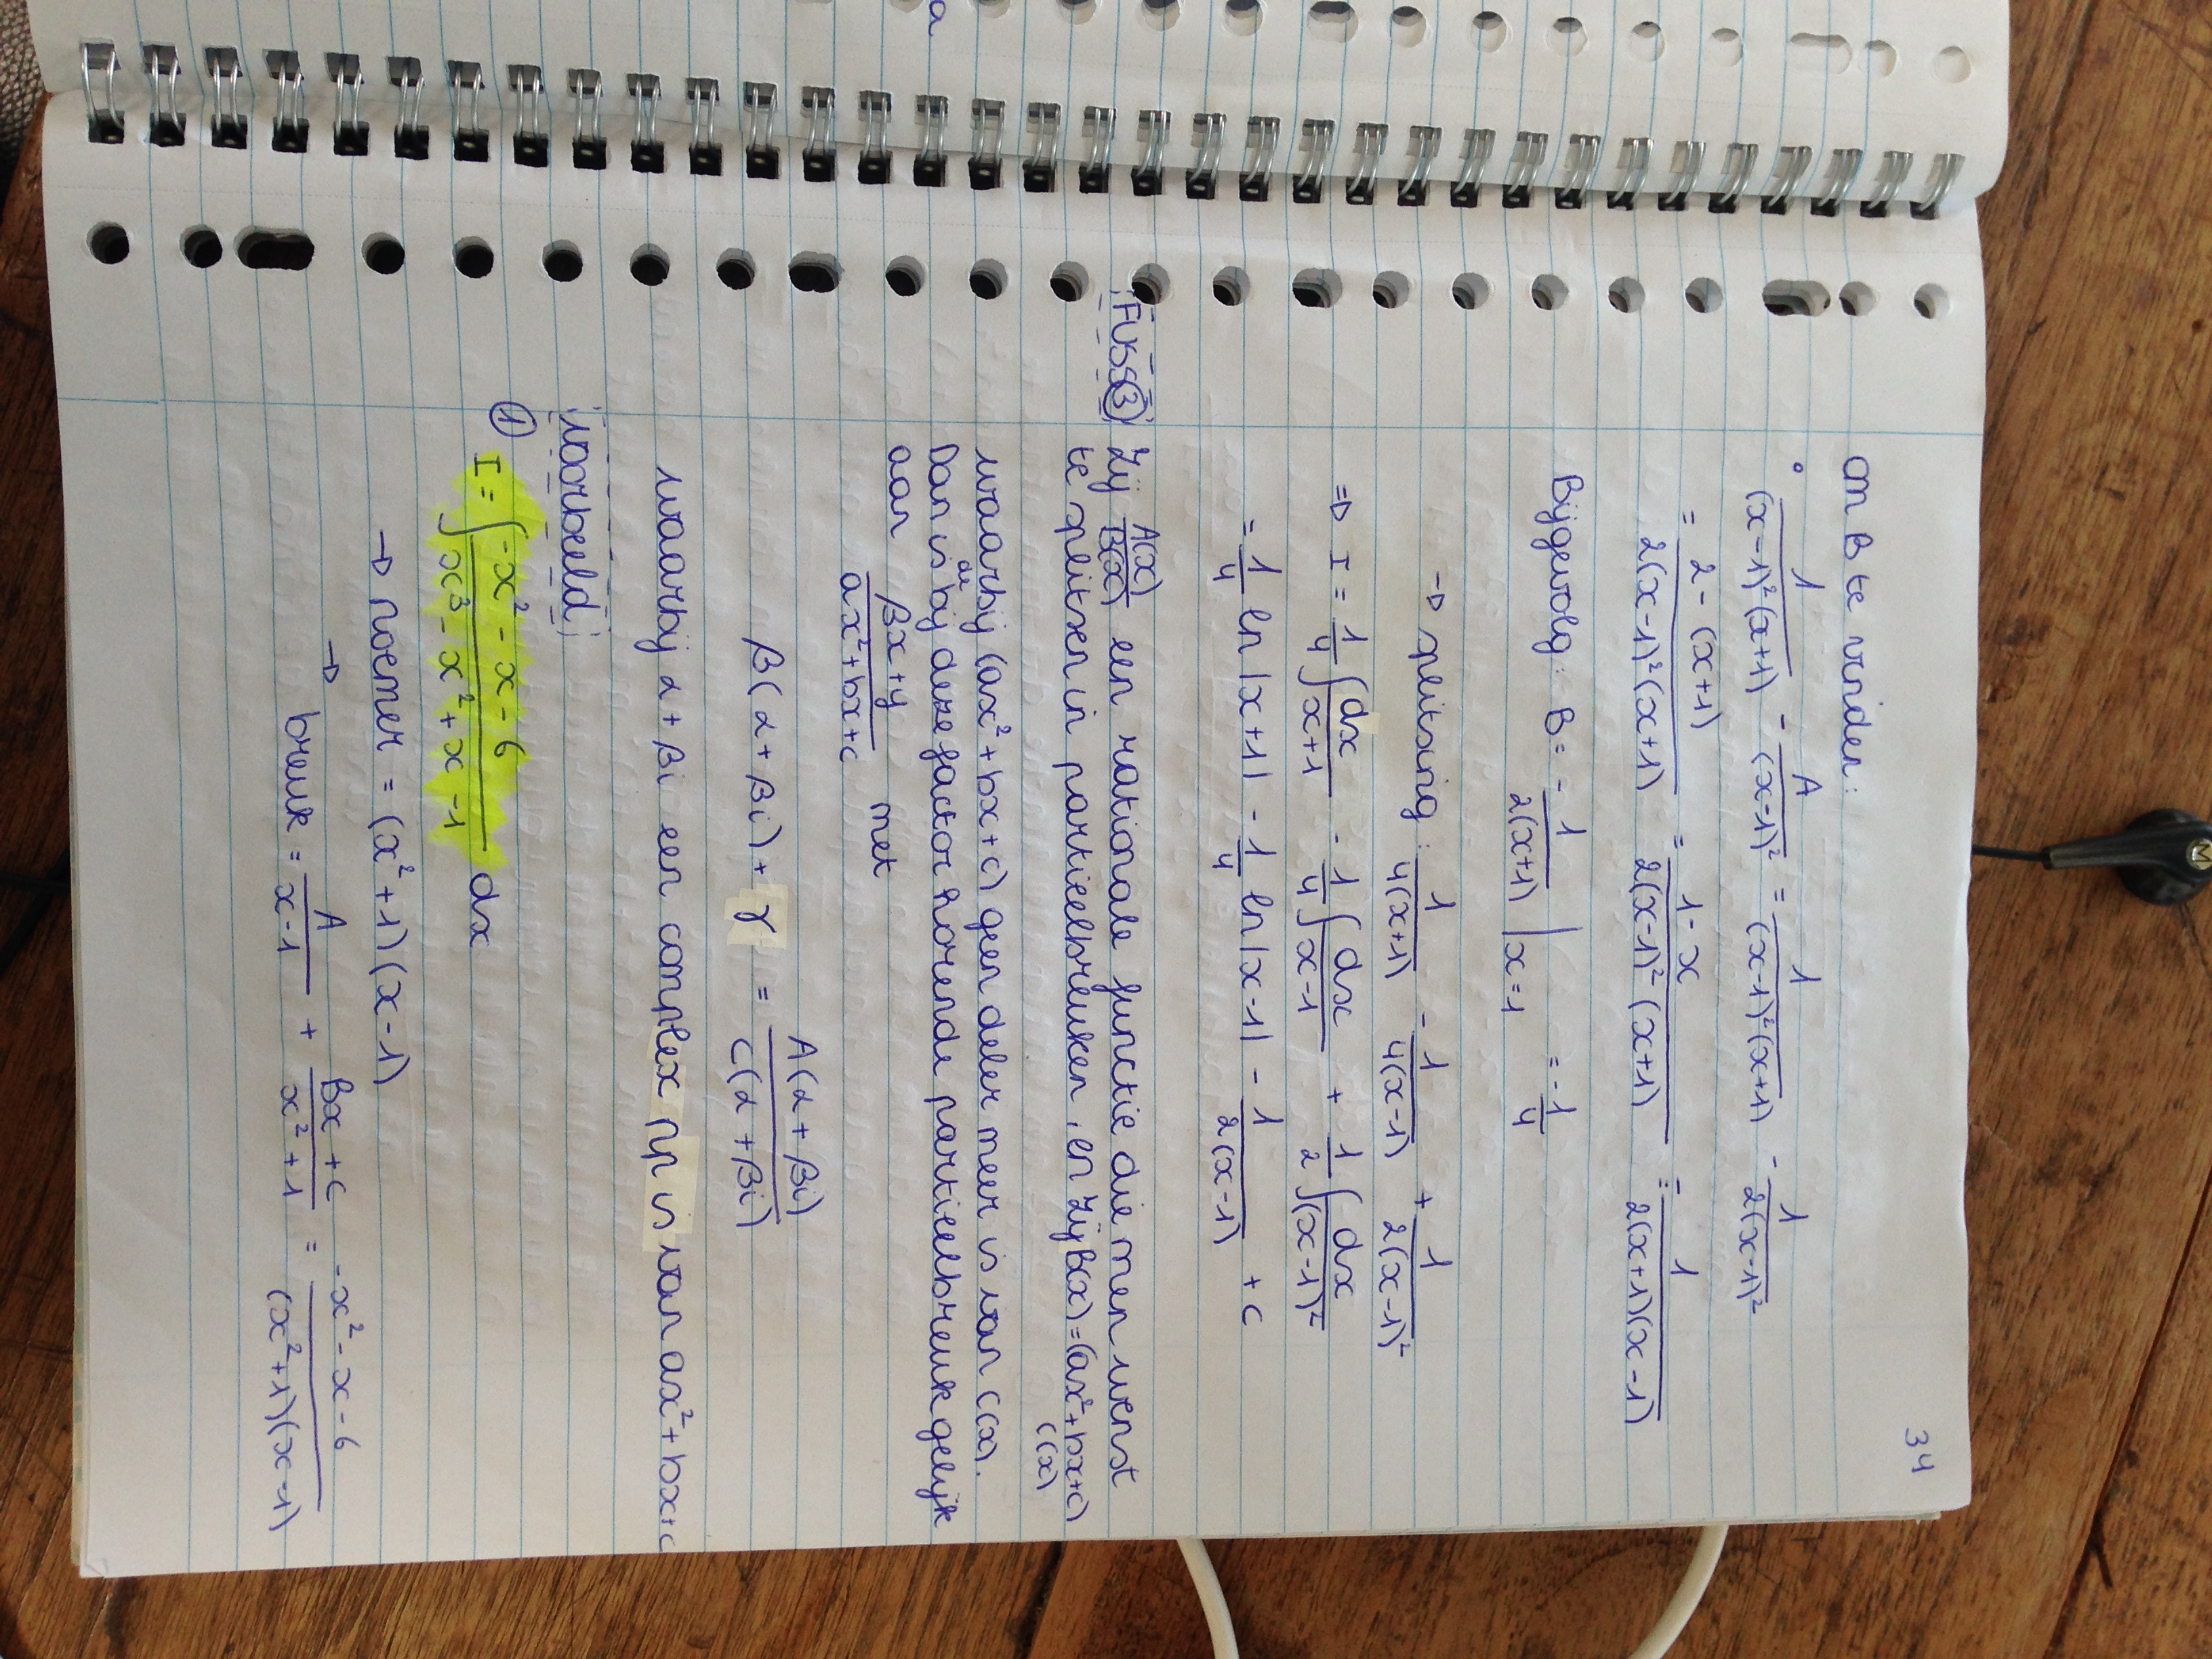 M
34
om B te vinden:
° 1/((x-1)²(x+1)) - A/(x-1)² = 1/((x-1)²(x+1)) - 1/(2(x-1)²)
= (2-(x+1))/(2(x-1)²(x+1)) = (1-x)/(2(x-1)²(x+1)) = 1/(2(x+1)(x-1))
Bijgevolg: B = -1/(2(x+1)) |x=1 = -1/4
→ splitsing: 1/(4(x+1)) - 1/(4(x-1)) + 1/(2(x-1)²)
⇒ I = 1/4 ∫ dx/(x+1) - 1/4 ∫ dx/(x-1) + 1/2 ∫ dx/(x-1)²
= 1/4 ln|x+1| - 1/4 ln|x-1| - 1/(2(x-1)) + c
FUSS③ Zij A(x)/B(x) een rationale functie die men wenst
te splitsen in partieelbreuken, en zij B(x)=(ax²+bx+c)
C(x)
waarbij (ax²+bx+c) geen deler meer is van C(x).
Dan is de bij deze factor horende partieelbreuk gelijk
aan (βx+y)/(ax²+bx+c) met
β(α+βi)+γ = A(α+βi)/C(α+βi)
waarbij α+βi een complex np is van ax²+bx+c
voorbeeld
① I = ∫ (-x²-x-6)/(x³-x²+x-1) dx
→ noemer = (x²+1)(x-1)
→ breuk = A/(x-1) + (Bx+C)/(x²+1) = (-x²-x-6)/((x²+1)(x-1))
a